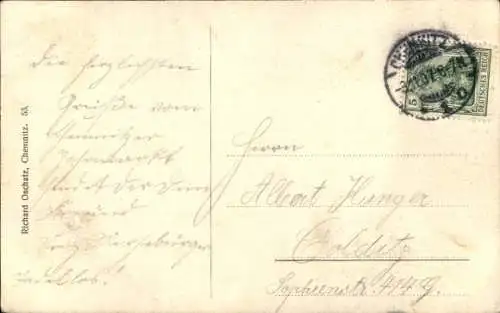 Die herzlichsten
Grüße vom
Chemnitzer
Jahrmarkt
sendet Dir Dein
Freund
Merseburger
Tadellos!
Richard Oschatz, Chemnitz. 53.
CHEMNITZ
DEUTSCHES REICH
5
Herrn
Albert Hunger
Colditz
Sophienstr. 414 G.